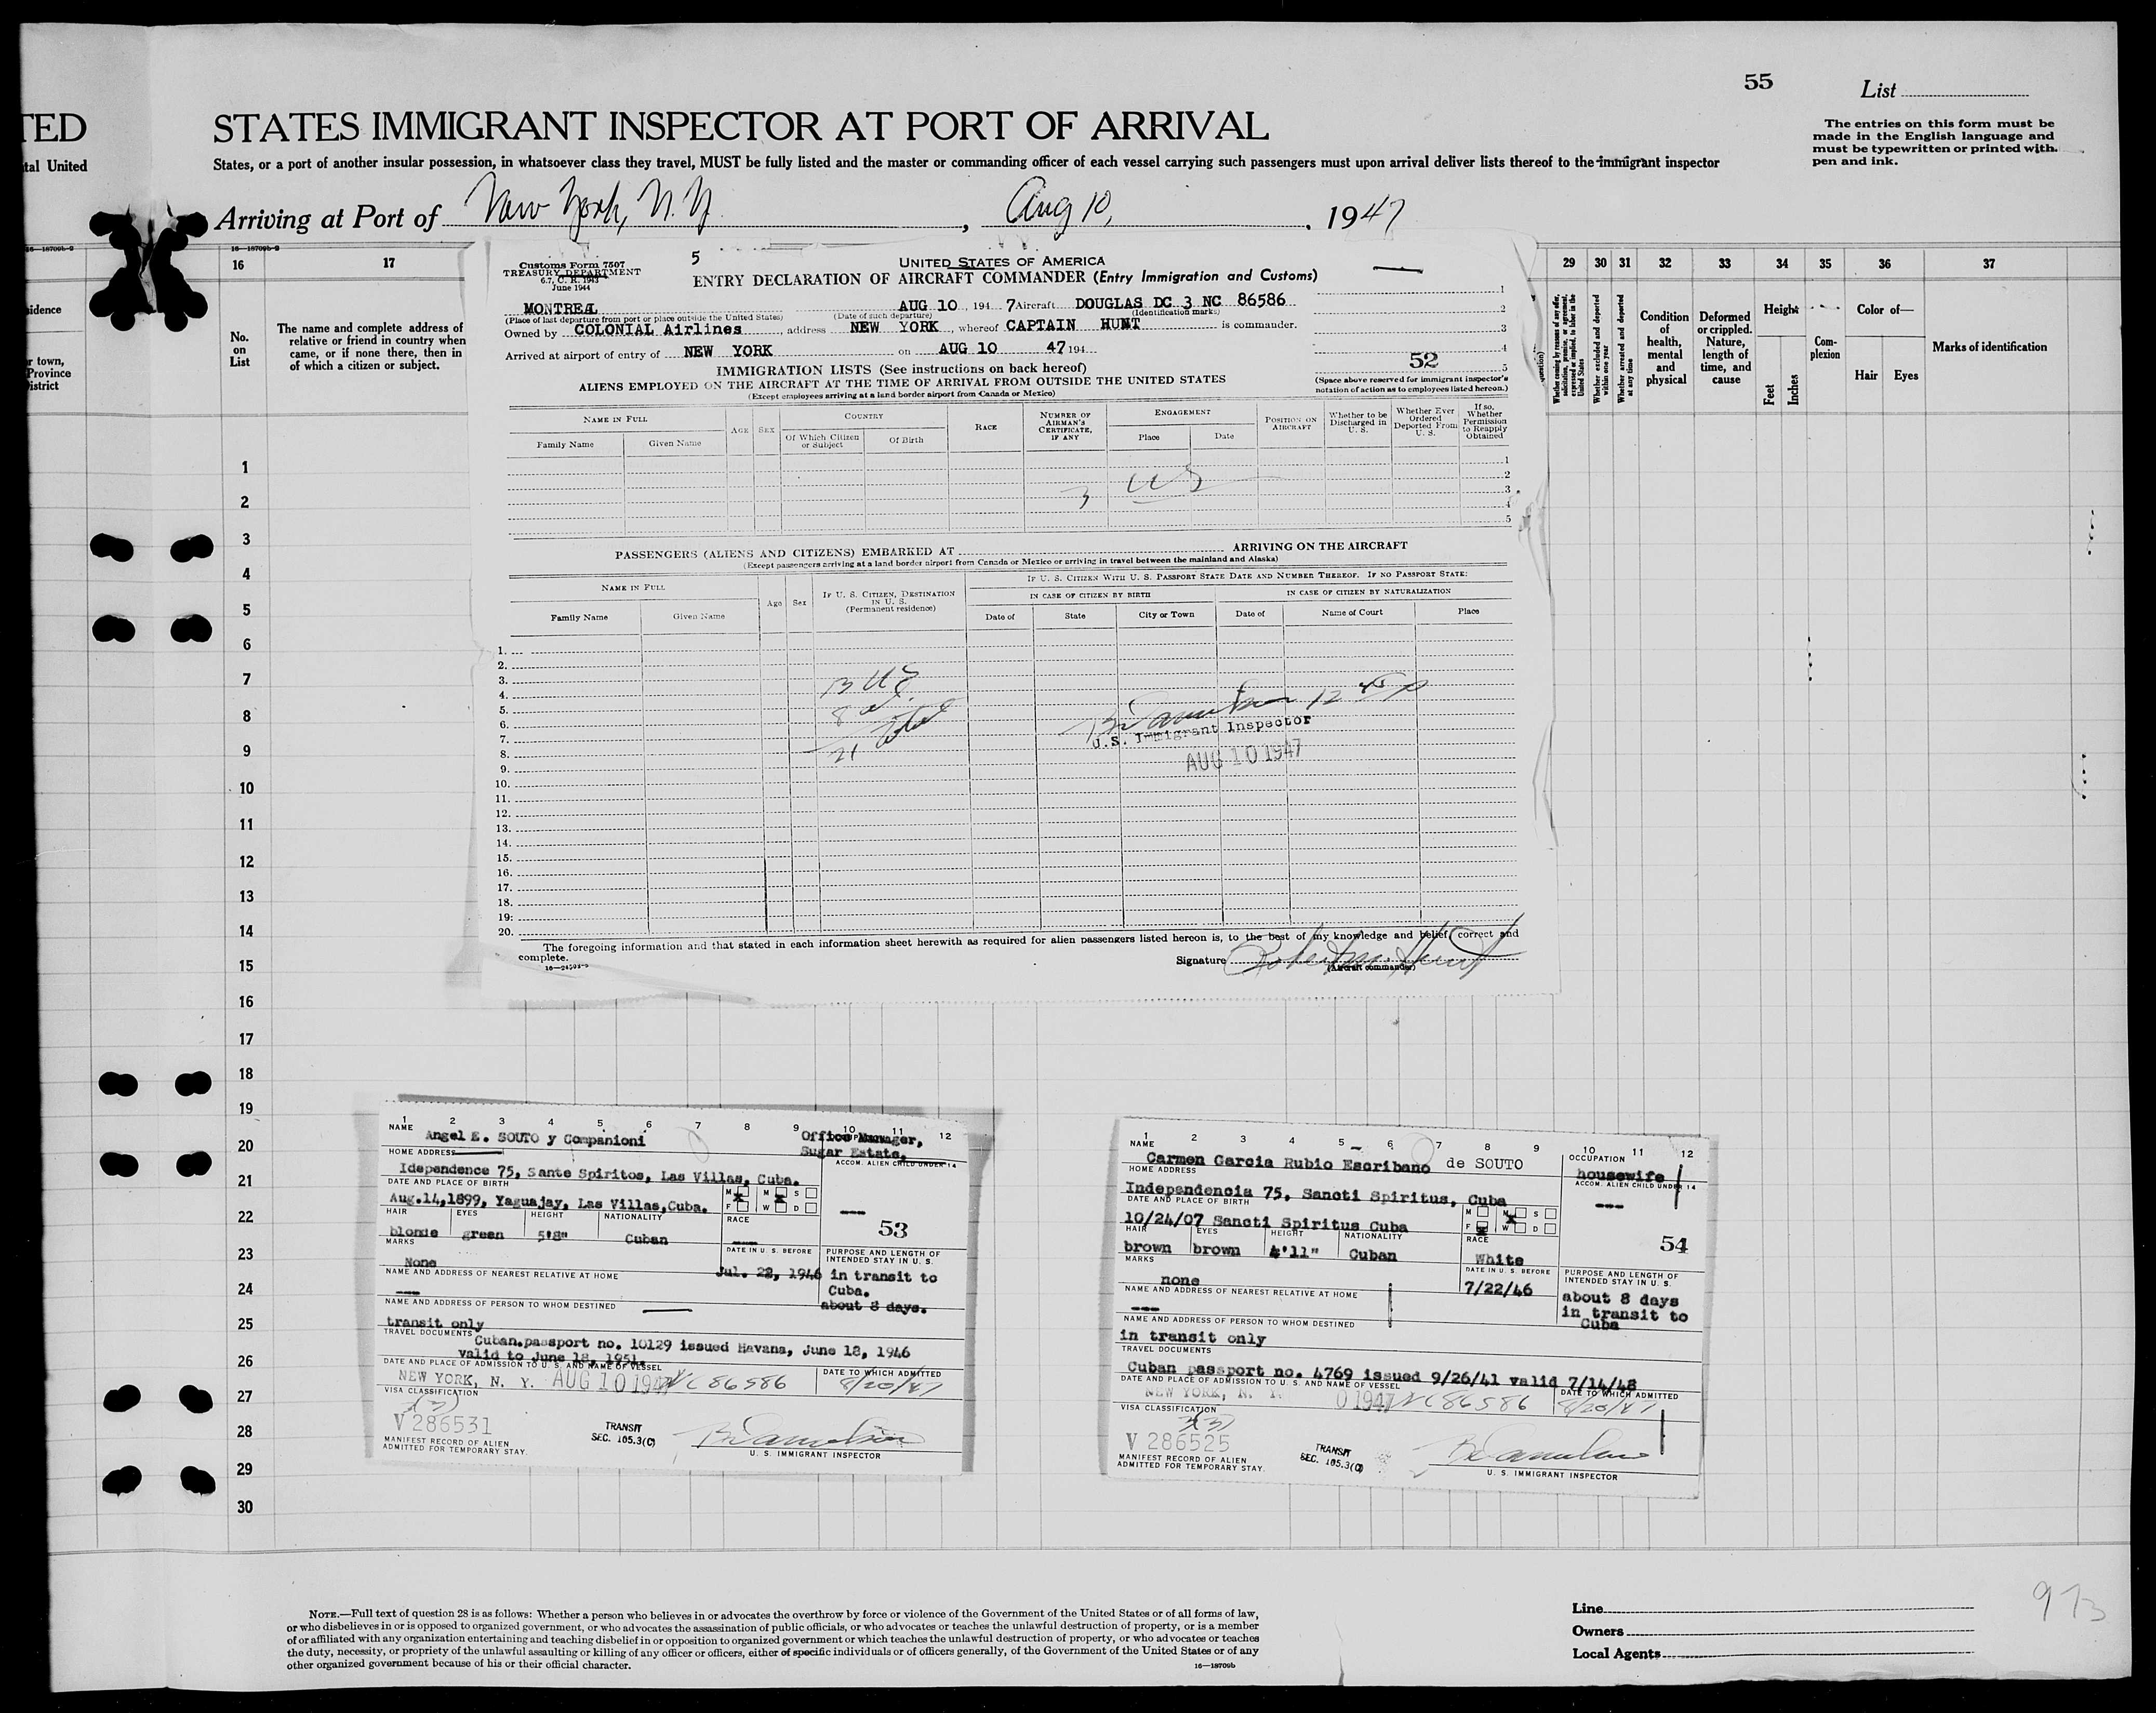 55
List
TED
STATES IMMIGRANT INSPECTOR AT PORT OF ARRIVAL
The entries on this form must be
made in the English language and
must be typewritten or printed with
pen and ink.
tal United
States, or a port of another insular possession, in whatsoever class they travel, MUST be fully listed and the master or commanding officer of each vessel carrying such passengers must upon arrival deliver lists thereof to the immigrant inspector
Arriving at Port of New York, N.Y. , Aug 10, , 1947
16—18709b-9
16 17
idence
r town,
Province
istrict
No.
on
List
The name and complete address of
relative or friend in country when
came, or if none there, then in
of which a citizen or subject.
29 30 31 32 33 34 35 36 37
Whether excluded and deported within one year
Whether arrested and deported at any time
Condition
of
health,
mental
and
physical
Deformed
or crippled.
Nature,
length of
time, and
cause
Height
Feet
Inches
Com-
plexion
Color of—
Hair
Eyes
Marks of identification
1
2
3
4
5
6
7
8
9
10
11
12
13
14
15
16
17
18
19
20
21
22
23
24
25
26
27
28
29
30
Customs Form 7507
TREASURY DEPARTMENT
6.7, C. R. 1943
June 1944
5
UNITED STATES OF AMERICA
ENTRY DECLARATION OF AIRCRAFT COMMANDER (Entry Immigration and Customs)
MONTREAL AUG 10 194 7 Aircraft DOUGLAS DC 3 NC 86586
(Place of last departure from port or place outside the United States) (Date of such departure) (Identification marks)
Owned by COLONIAL Airlines address NEW YORK, whereof CAPTAIN HUNT is commander.
Arrived at airport of entry of NEW YORK on AUG 10 47 194
1
2
3
4
52
5
IMMIGRATION LISTS (See instructions on back hereof)
ALIENS EMPLOYED ON THE AIRCRAFT AT THE TIME OF ARRIVAL FROM OUTSIDE THE UNITED STATES
(Except employees arriving at a land border airport from Canada or Mexico)
(Space above reserved for immigrant inspector's
notation of action as to employees listed hereon.)
NAME IN FULL
Family Name
Given Name
AGE
SEX
COUNTRY
Of Which Citizen
or Subject
Of Birth
RACE
NUMBER OF
AIRMAN'S
CERTIFICATE,
IF ANY
ENGAGEMENT
Place
Date
POSITION ON
AIRCRAFT
Whether to be
Discharged in
U. S.
Whether Ever
Ordered
Deported From
U. S.
If so,
Whether
Permission
to Reapply
Obtained
1
2
3
4
5
3 US
PASSENGERS (ALIENS AND CITIZENS) EMBARKED AT ARRIVING ON THE AIRCRAFT
(Except passengers arriving at a land border airport from Canada or Mexico or arriving in travel between the mainland and Alaska)
NAME IN FULL
Family Name
Given Name
Age
Sex
IF U. S. CITIZEN, DESTINATION
IN U. S.
(Permanent residence)
IF U. S. CITIZEN WITH U. S. PASSPORT STATE DATE AND NUMBER THEREOF. IF NO PASSPORT STATE:
IN CASE OF CITIZEN BY BIRTH
IN CASE OF CITIZEN BY NATURALIZATION
Date of
State
City or Town
Date of
Name of Court
Place
1.
2.
3.
4.
5.
6.
7.
8.
9.
10.
11.
12.
13.
14.
15.
16.
17.
18.
19.
20.
13 US
8
21
12 45 P
U.S. Immigrant Inspector
AUG 10 1947
The foregoing information and that stated in each information sheet herewith as required for alien passengers listed hereon is, to the best of my knowledge and belief, correct and
complete.
Signature Robert M. Hunt
(Aircraft commander)
1 2 3 4 5 6 7 8 9 10 11 12
NAME
Angel E. SOUTO y Companioni
Office Manager,
Sugar Estate.
HOME ADDRESS
ACCOM. ALIEN CHILD UNDER 14
Idependence 75, Sante Spiritos, Las Villas, Cuba.
DATE AND PLACE OF BIRTH
Aug.14,1899, Yaguajay, Las Villas,Cuba.
M X M X S
F W D
---
53
HAIR EYES HEIGHT NATIONALITY RACE
blonde green 5'8" Cuban ----
MARKS
None
DATE IN U. S. BEFORE
Jul. 22, 1946
PURPOSE AND LENGTH OF
INTENDED STAY IN U. S.
in transit to
Cuba.
about 8 days.
NAME AND ADDRESS OF NEAREST RELATIVE AT HOME
---
NAME AND ADDRESS OF PERSON TO WHOM DESTINED
transit only
TRAVEL DOCUMENTS
Cuban.passport no. 10129 issued Havana, June 18, 1946
valid to June 18, 1951.
DATE AND PLACE OF ADMISSION TO U. S. AND NAME OF VESSEL
NEW YORK, N. Y. AUG 10 1947 NC 86586
DATE TO WHICH ADMITTED
8/20/47
VISA CLASSIFICATION
3(3)
V 286531
MANIFEST RECORD OF ALIEN
ADMITTED FOR TEMPORARY STAY.
TRANSIT
SEC. 105.3(C)
U. S. IMMIGRANT INSPECTOR
1 2 3 4 5 6 7 8 9 10 11 12
NAME
Carmen Garcia Rubio Escribano de SOUTO
OCCUPATION
housewife
HOME ADDRESS
ACCOM. ALIEN CHILD UNDER 14
Independencia 75, Sancti Spiritus, Cuba
---
DATE AND PLACE OF BIRTH
10/24/07 Sancti Spiritus Cuba
M M X S
F X W D
54
HAIR EYES HEIGHT NATIONALITY RACE
brown brown 4'11" Cuban White
MARKS
none
DATE IN U. S. BEFORE
7/22/46
PURPOSE AND LENGTH OF
INTENDED STAY IN U. S.
about 8 days
in transit to
Cuba
NAME AND ADDRESS OF NEAREST RELATIVE AT HOME
---
NAME AND ADDRESS OF PERSON TO WHOM DESTINED
in transit only
TRAVEL DOCUMENTS
Cuban passport no. 4769 issued 9/26/41 valid 7/14/48
DATE AND PLACE OF ADMISSION TO U. S. AND NAME OF VESSEL
NEW YORK, N. Y. 0 1947 NC 86586
DATE TO WHICH ADMITTED
8/20/47
VISA CLASSIFICATION
3(3)
V 286525
MANIFEST RECORD OF ALIEN
ADMITTED FOR TEMPORARY STAY.
TRANSIT
SEC. 105.3(C)
U. S. IMMIGRANT INSPECTOR
NOTE.—Full text of question 28 is as follows: Whether a person who believes in or advocates the overthrow by force or violence of the Government of the United States or of all forms of law,
or who disbelieves in or is opposed to organized government, or who advocates the assassination of public officials, or who advocates or teaches the unlawful destruction of property, or is a member
of or affiliated with any organization entertaining and teaching disbelief in or opposition to organized government or which teaches the unlawful destruction of property, or who advocates or teaches
the duty, necessity, or propriety of the unlawful assaulting or killing of any officer or officers, either of specific individuals or of officers generally, of the Government of the United States or of any
other organized government because of his or their official character.
16—18709b
Line
Owners
Local Agents
973